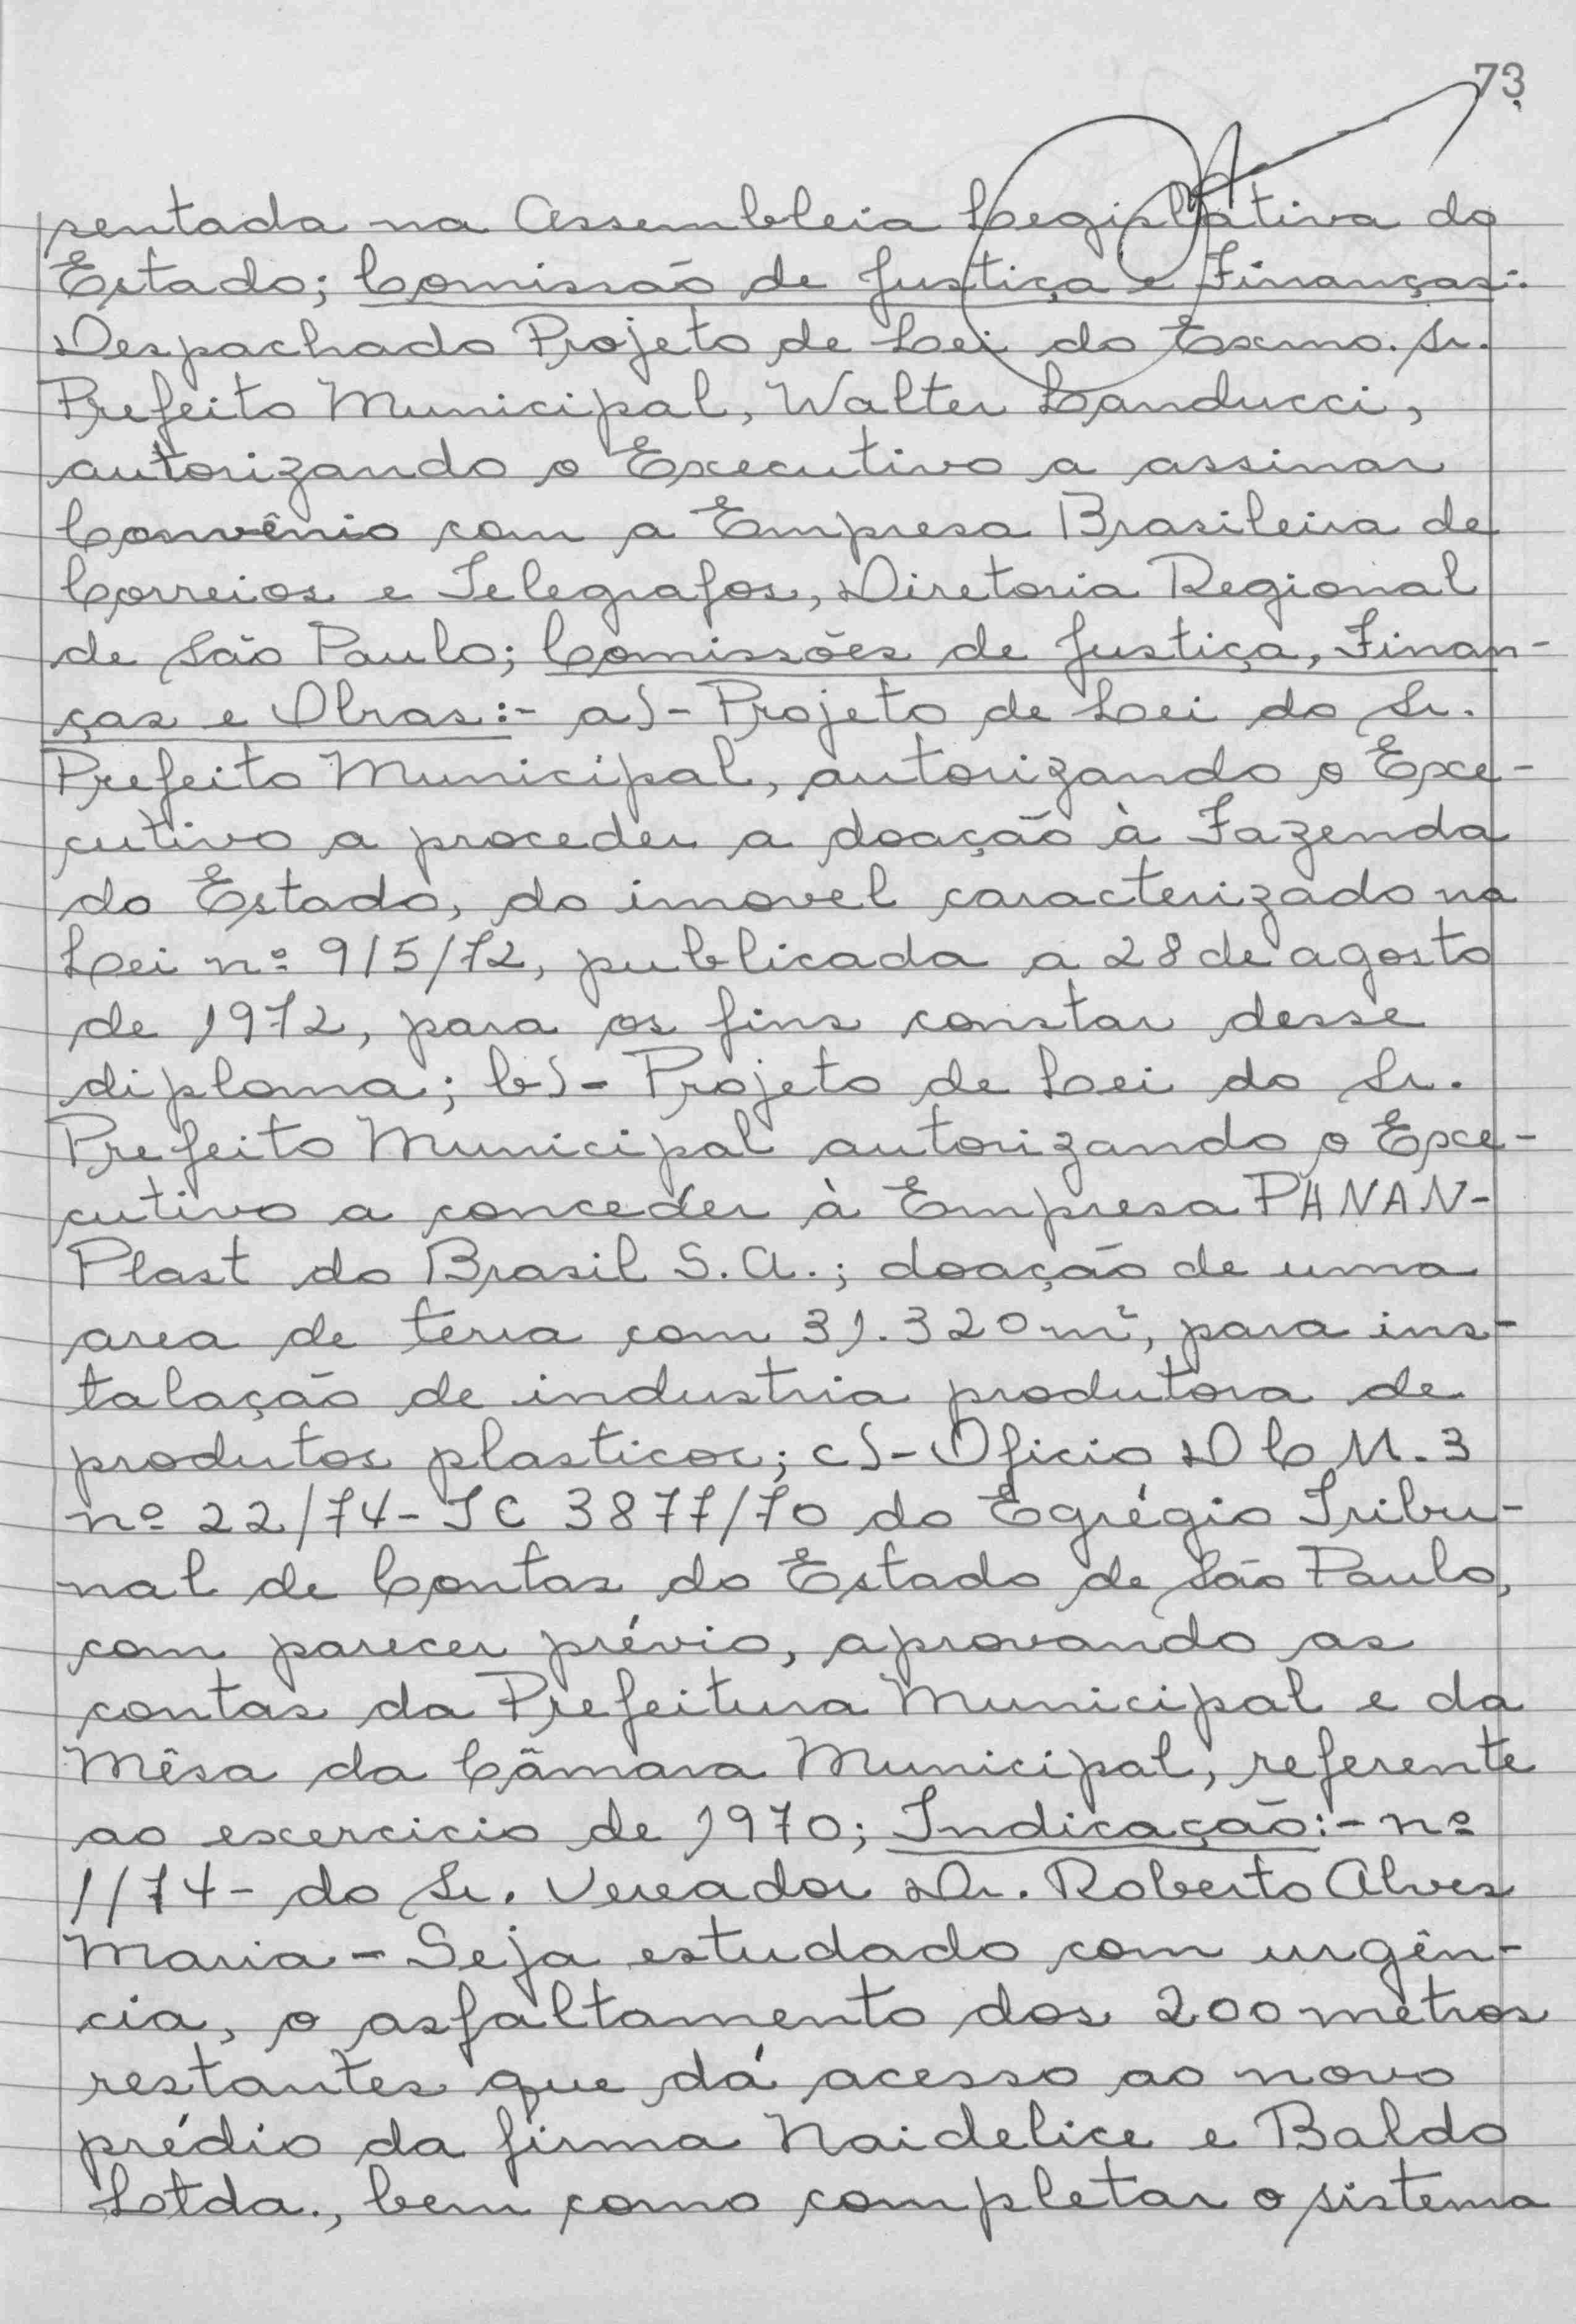 73
sentada na Assembleia Legislativa do
Estado; Comissão de Justiça e Finanças:
Despachado Projeto de Lei do Exmo. Sr.
Prefeito Municipal, Walter Landucci,
autorizando o Executivo a assinar
Convênio com a Empresa Brasileira de
Correios e Telegrafos, Diretoria Regional
de São Paulo; Comissões de Justiça, Finan-
ças e Obras:- a)- Projeto de Lei do Sr.
Prefeito Municipal, autorizando o Exe-
cutivo a proceder a doação à Fazenda
do Estado, do imovel caracterizado na
Lei nº 915/72, publicada a 28 de agosto
de 1972, para os fins constar desse
diploma; b)- Projeto de Lei do Sr.
Prefeito Municipal autorizando o Exe-
cutivo a conceder à Empresa PANAN-
Plast do Brasil S.A.; doação de uma
area de terra com 31.320m², para ins-
talação de industria produtora de
produtos plasticos; c)- Oficio D C M. 3
nº 22/74- TC 3877/70 do Egrégio Tribu-
nal de Contas do Estado de São Paulo,
com parecer prévio, aprovando as
contas da Prefeitura Municipal e da
Mêsa da Câmara Municipal, referente
ao exercicio de 1970; Indicação:- nº
1/74- do Sr. Vereador Dr. Roberto Alves
Maria - Seja estudado com urgên-
cia, o asfaltamento dos 200 metros
restantes que dá acesso ao novo
prédio da firma Naidelice e Baldo
Ltda., bem como completar o sistema